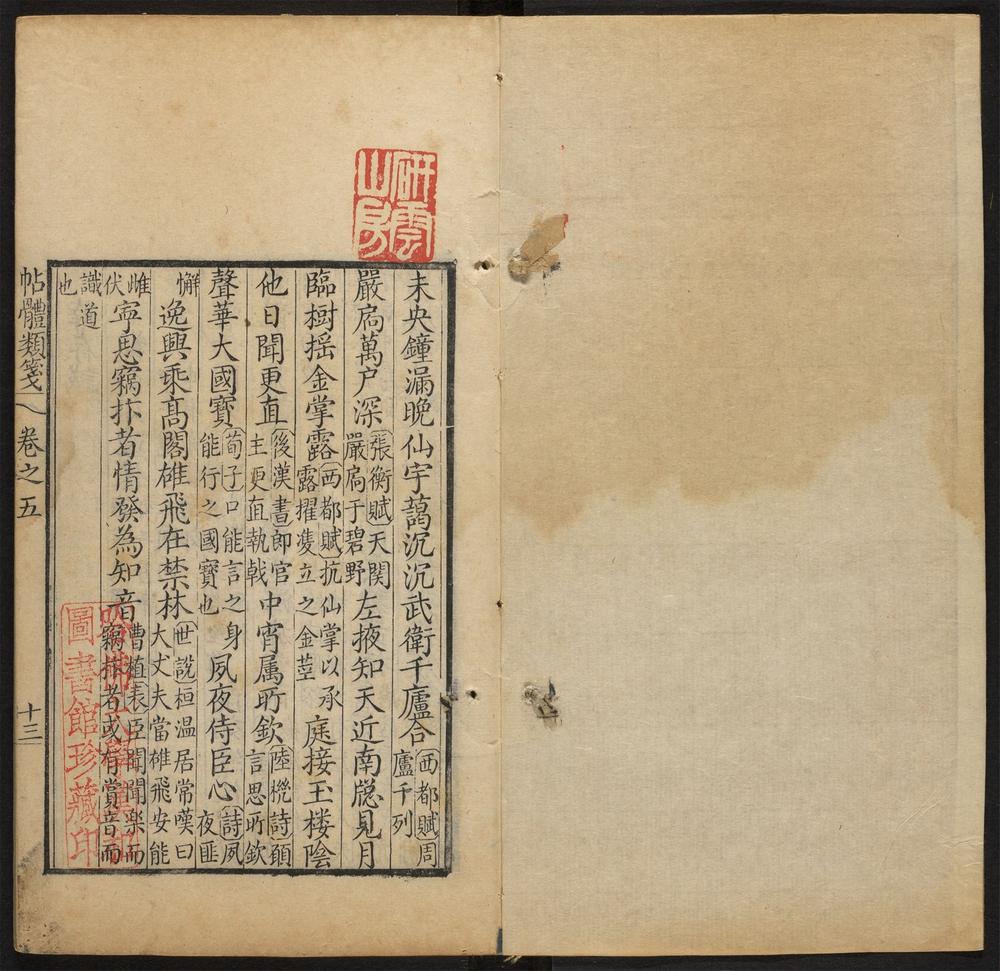 研雲
山房
未央鐘漏晚仙宇藹沉沉武衛千廬合西都賦周廬千列
嚴扃萬户深張衡賦天関嚴扃于碧野左掖知天近南牎見月
臨樹揺金掌露西都賦抗仙掌以承露擢雙立之金莖庭接玉楼陰
他日聞更直後漢書郎官主更直執戟中宵属所欽陸機詩願言思所欽
聲華大國寳荀子口能言之身能行之國寳也夙夜侍臣心詩夙夜匪
懈逸興乘髙閣雄飛在禁林世説桓温居常嘆曰大丈夫當雄飛安能
雌伏寜思竊抃者情發為知音曹植表臣聞聞楽而竊抃者或有賞音而
識道也
帖體類箋 卷之五 十三
哈佛大學漢和
圖書館珍藏印